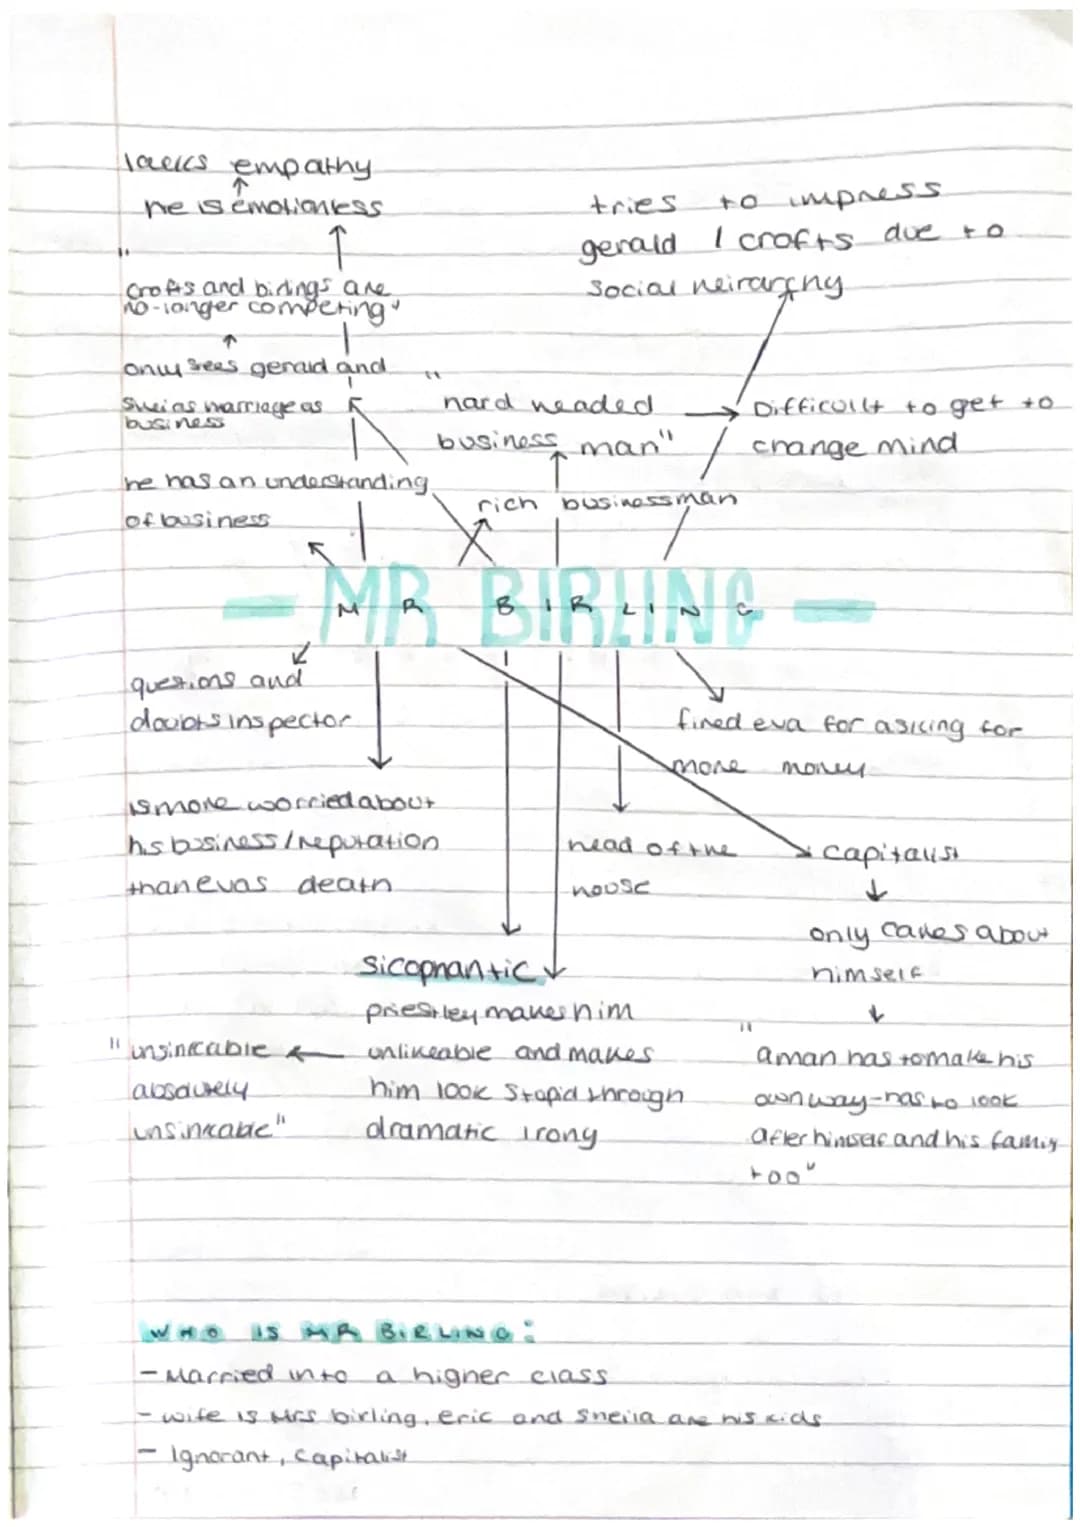 lacks empathy
he is emotionless
"
crofts and birlings are
no-longer competing"
only sees gerald and
Sheias marriage as
business
he has an understanding
of business
tries to impress
gerald / crofts due to
social heirarchy
"
hard headed
business man"
Difficult to get to
change mind
rich businessman
MR BIRLING
M R B I R L I N G
questions and
doubts inspector
is more worried about
his business/reputation
than evas death
fined eva for asking for
more money
head of the
house
capitalist
only cares about
himself
"
a man has to make his
own way-has to look
after himself and his family
too"
sicophantic
priestley makes him
unlikeable and makes
him look stupid through
dramatic irony
"unsinkable
absolutely
unsinkable"
WHO IS MR BIRLING:
- Married into a higher class
- wife is Mrs birling, eric and sheila are his kids
- Ignorant, capitalist